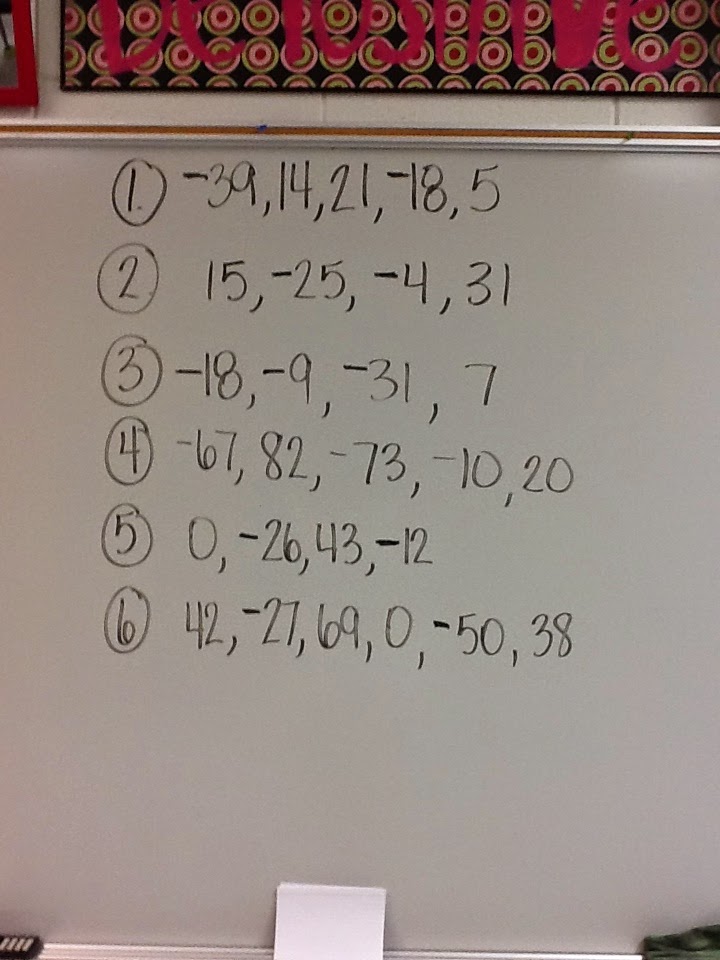 BE POSITIVE
1. -39, 14, 21, -18, 5
2 15, -25, -4, 31
3 -18, -9, -31, 7
4 -67, 82, -73, -10, 20
5 0, -26, 43, -12
6 42, -27, 69, 0, -50, 38